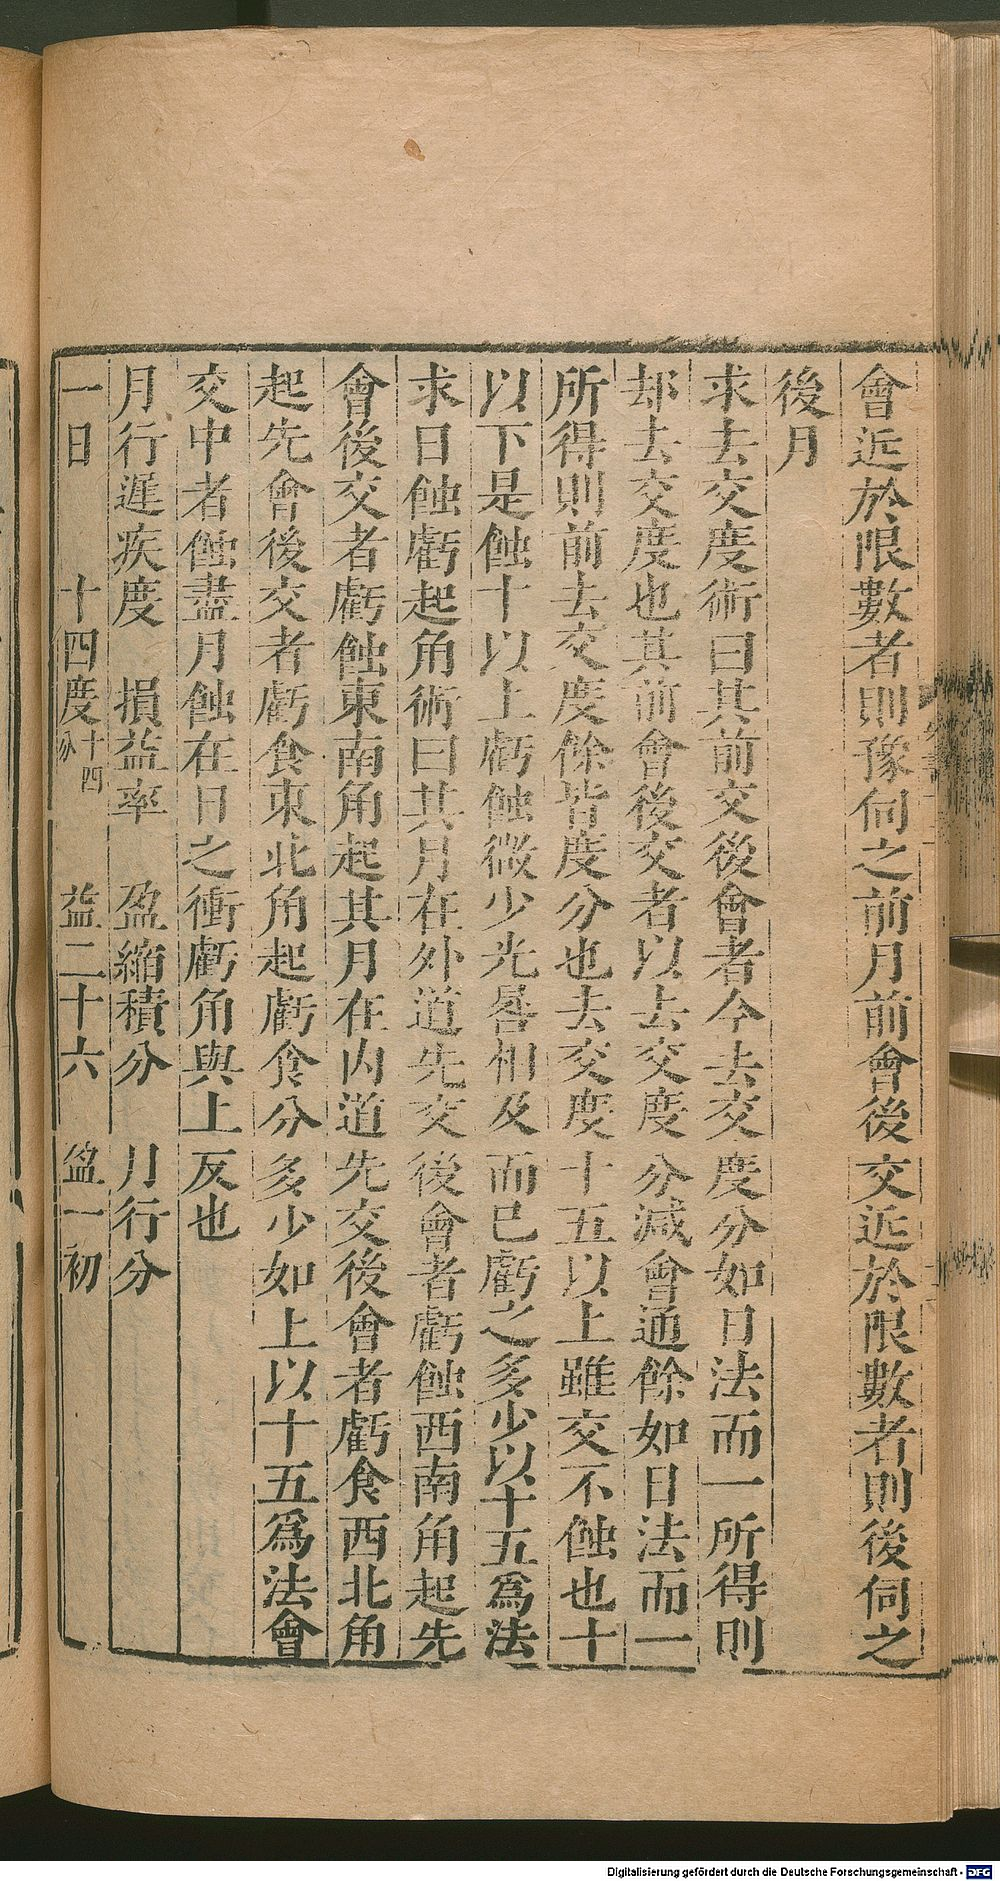 會近於限數者則豫伺之前月前會後交近於限數者則後伺之
後月
求去交度術曰其前交後會者今去交度分如日法而一所得則
却去交度也其前會後交者以去交度分減會通餘如日法而一
所得則前去交度餘皆度分也去交度十五以上雖交不蝕也十
以下是蝕十以上虧蝕微少光晷相及而已虧之多少以十五爲法
求日蝕虧起角術曰其月在外道先交後會者虧蝕西南角起先
會後交者虧蝕東南角起其月在內道先交後會者虧食西北角
起先會後交者虧食東北角起虧食分多少如上以十五爲法會
交中者蝕盡月蝕在日之衝虧角與上反也
月行遲疾度　損益率　盈縮積分　月行分
一日　十四度十四分　益二十六　盈一初
Digitalisierung gefördert durch die Deutsche Forschungsgemeinschaft - DFG